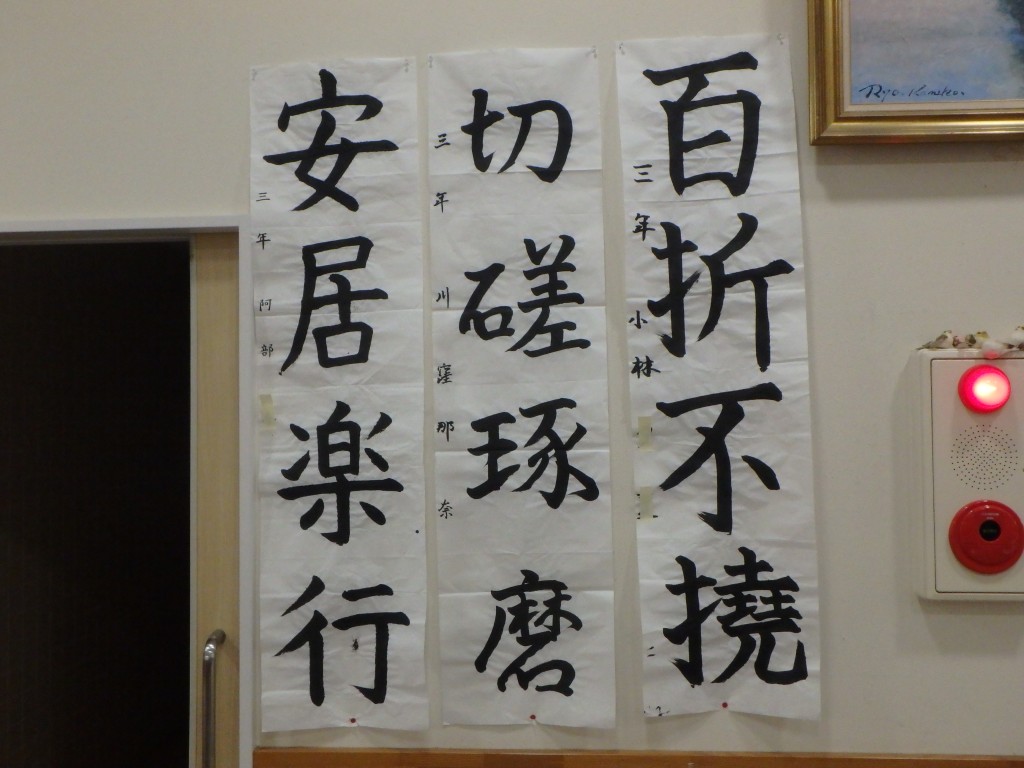 百折不撓
三年 小林
切磋琢磨
三年 川窪那奈
安居楽行
三年 阿部